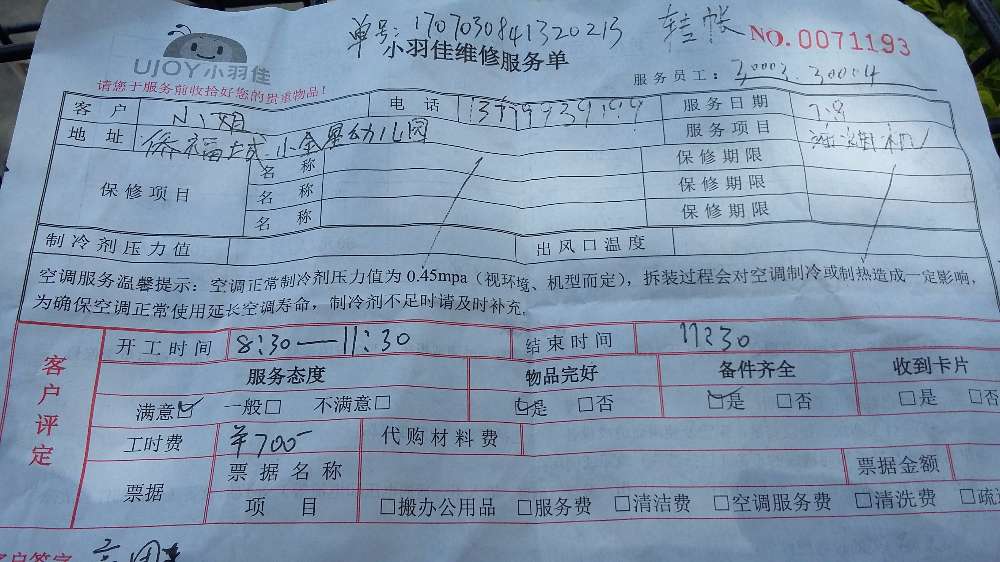 单号:1707030841320213 转帐
UJOY小羽佳 小羽佳维修服务单 NO.0071193
请您于服务前收拾好您的贵重物品! 服务员工:30003 30004
客户 电话 服务日期 7.8
地址 侨福土城 小金星幼儿园 服务项目 油烟机
保修项目 名称 保修期限
名称 保修期限
名称 保修期限
制冷剂压力值 出风口温度
空调服务温馨提示:空调正常制冷剂压力值为0.45mpa(视环境、机型而定),拆装过程会对空调制冷或制热造成一定影响,
为确保空调正常使用延长空调寿命,制冷剂不足时请及时补充.
客户评定
开工时间 8:30—11:30 结束时间 11:30
服务态度 物品完好 备件齐全 收到卡片
满意☑ 一般□ 不满意□ ☑是 □否 ☑是 □否 □是 □否
工时费 ¥700 代购材料费
票据 票据名称 票据金额
项目 □搬办公用品 □服务费 □清洁费 □空调服务费 □清洗费 □疏
客户签字